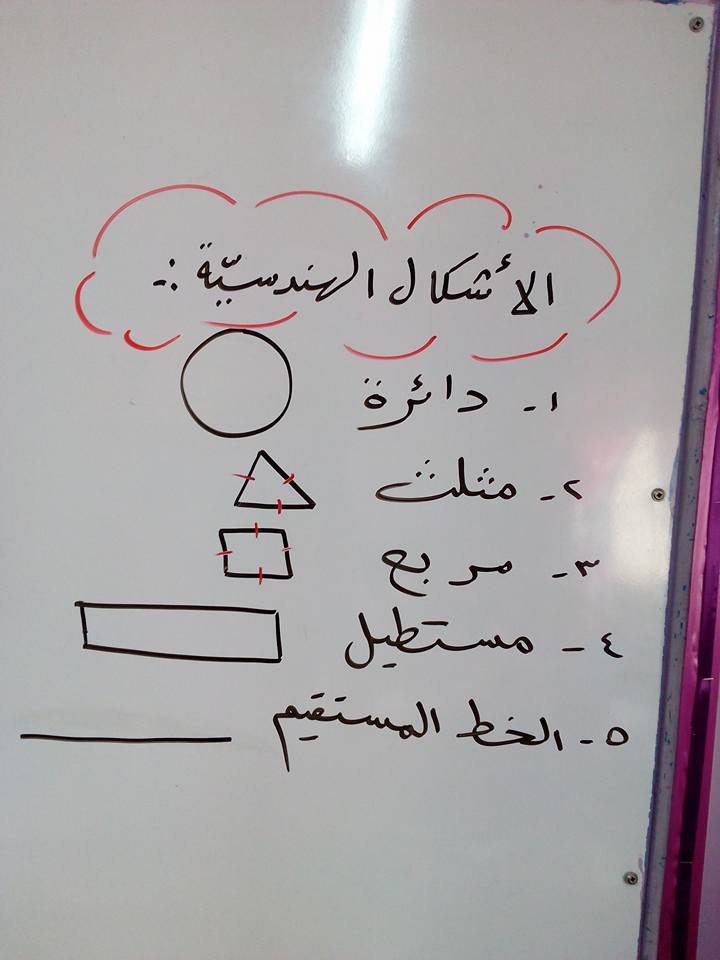 الأشكال الهندسيّة :-
١- دائرة
٢- مثلث
٣- مربع
٤- مستطيل
٥- الخط المستقيم